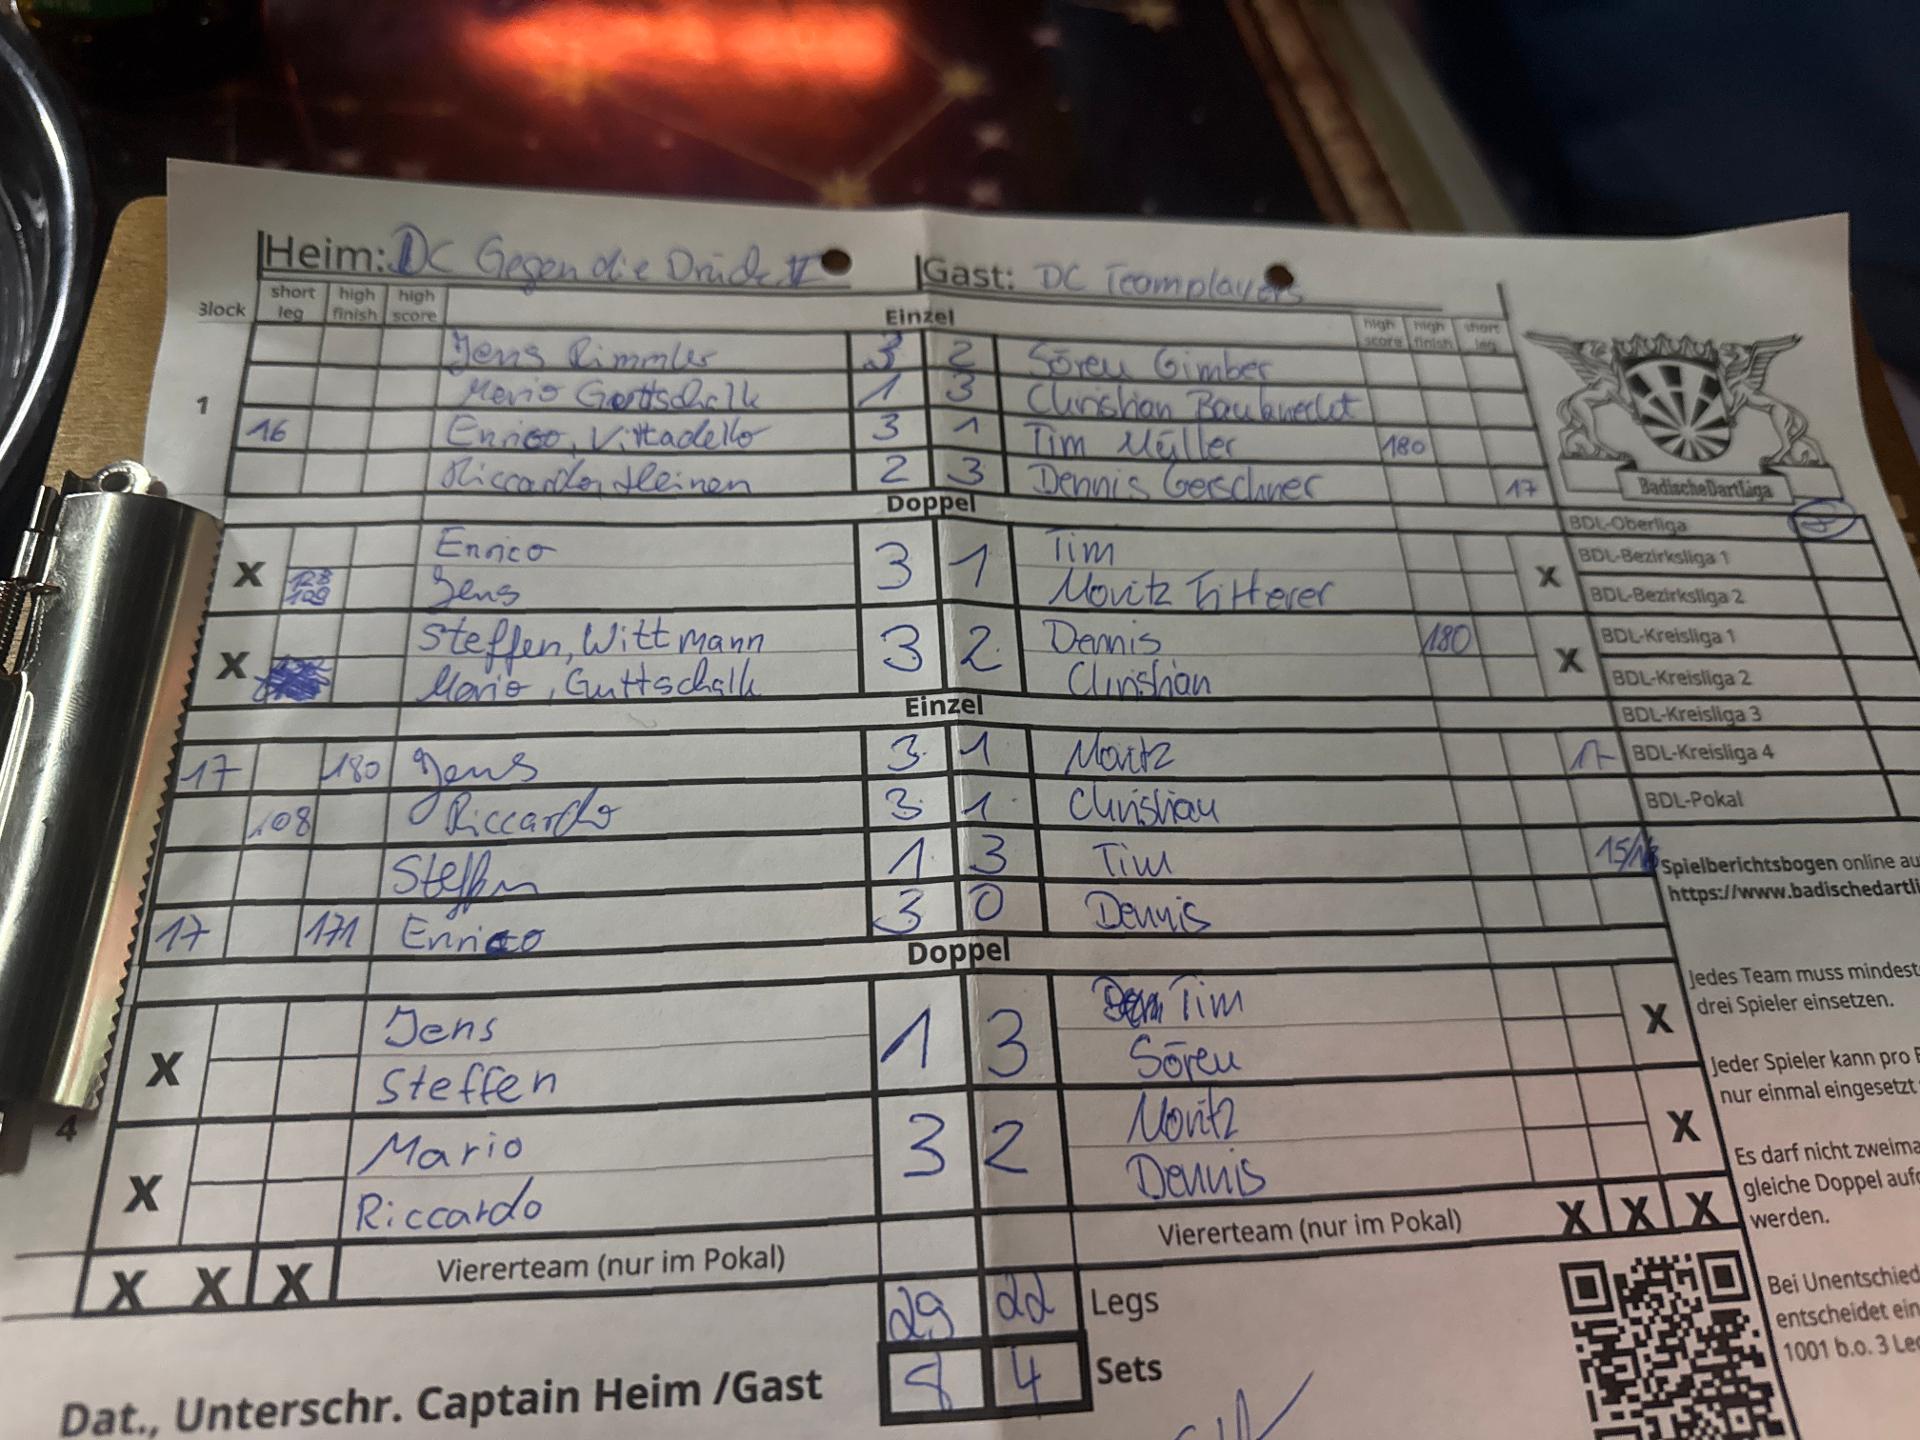 Heim: DC Gegen die Drück II Gast: DC Teamplayers
Block short leg high finish high score Einzel high score high finish short leg
Jens Rimmler 3 2 Sören Gimber
1 Mario Gottschalk 1 3 Christian Bauknecht
16 Enrico, Vittadello 3 1 Tim Müller 180
Riccardo, Heinen 2 3 Dennis Gerschner 17
Doppel
BadischeDartLiga
X Enrico 3 1 Tim X
128 109 Jens Moritz Fitterer
X Steffen, Wittmann 3 2 Dennis 180 X
Mario, Guttschalk Christian
Einzel
17 180 Jens 3 1 Moritz 17
108 Riccardo 3 1 Christian
Steffen 1 3 Tim 15/18
17 171 Enrico 3 0 Dennis
Doppel
X Jens 1 3 Tim X
Steffen Sören
4
X Mario 3 2 Moritz X
Riccardo Dennis
X X X Viererteam (nur im Pokal) Viererteam (nur im Pokal) X X X
29 22 Legs
8 4 Sets
Dat., Unterschr. Captain Heim /Gast
BDL-Oberliga
BDL-Bezirksliga 1
BDL-Bezirksliga 2
BDL-Kreisliga 1
BDL-Kreisliga 2
BDL-Kreisliga 3
BDL-Kreisliga 4
BDL-Pokal
Spielberichtsbogen online au
https://www.badischedartli
Jedes Team muss mindest
drei Spieler einsetzen.
Jeder Spieler kann pro B
nur einmal eingesetzt
Es darf nicht zweima
gleiche Doppel aufg
werden.
Bei Unentschied
entscheidet ein
1001 b.o. 3 Leg